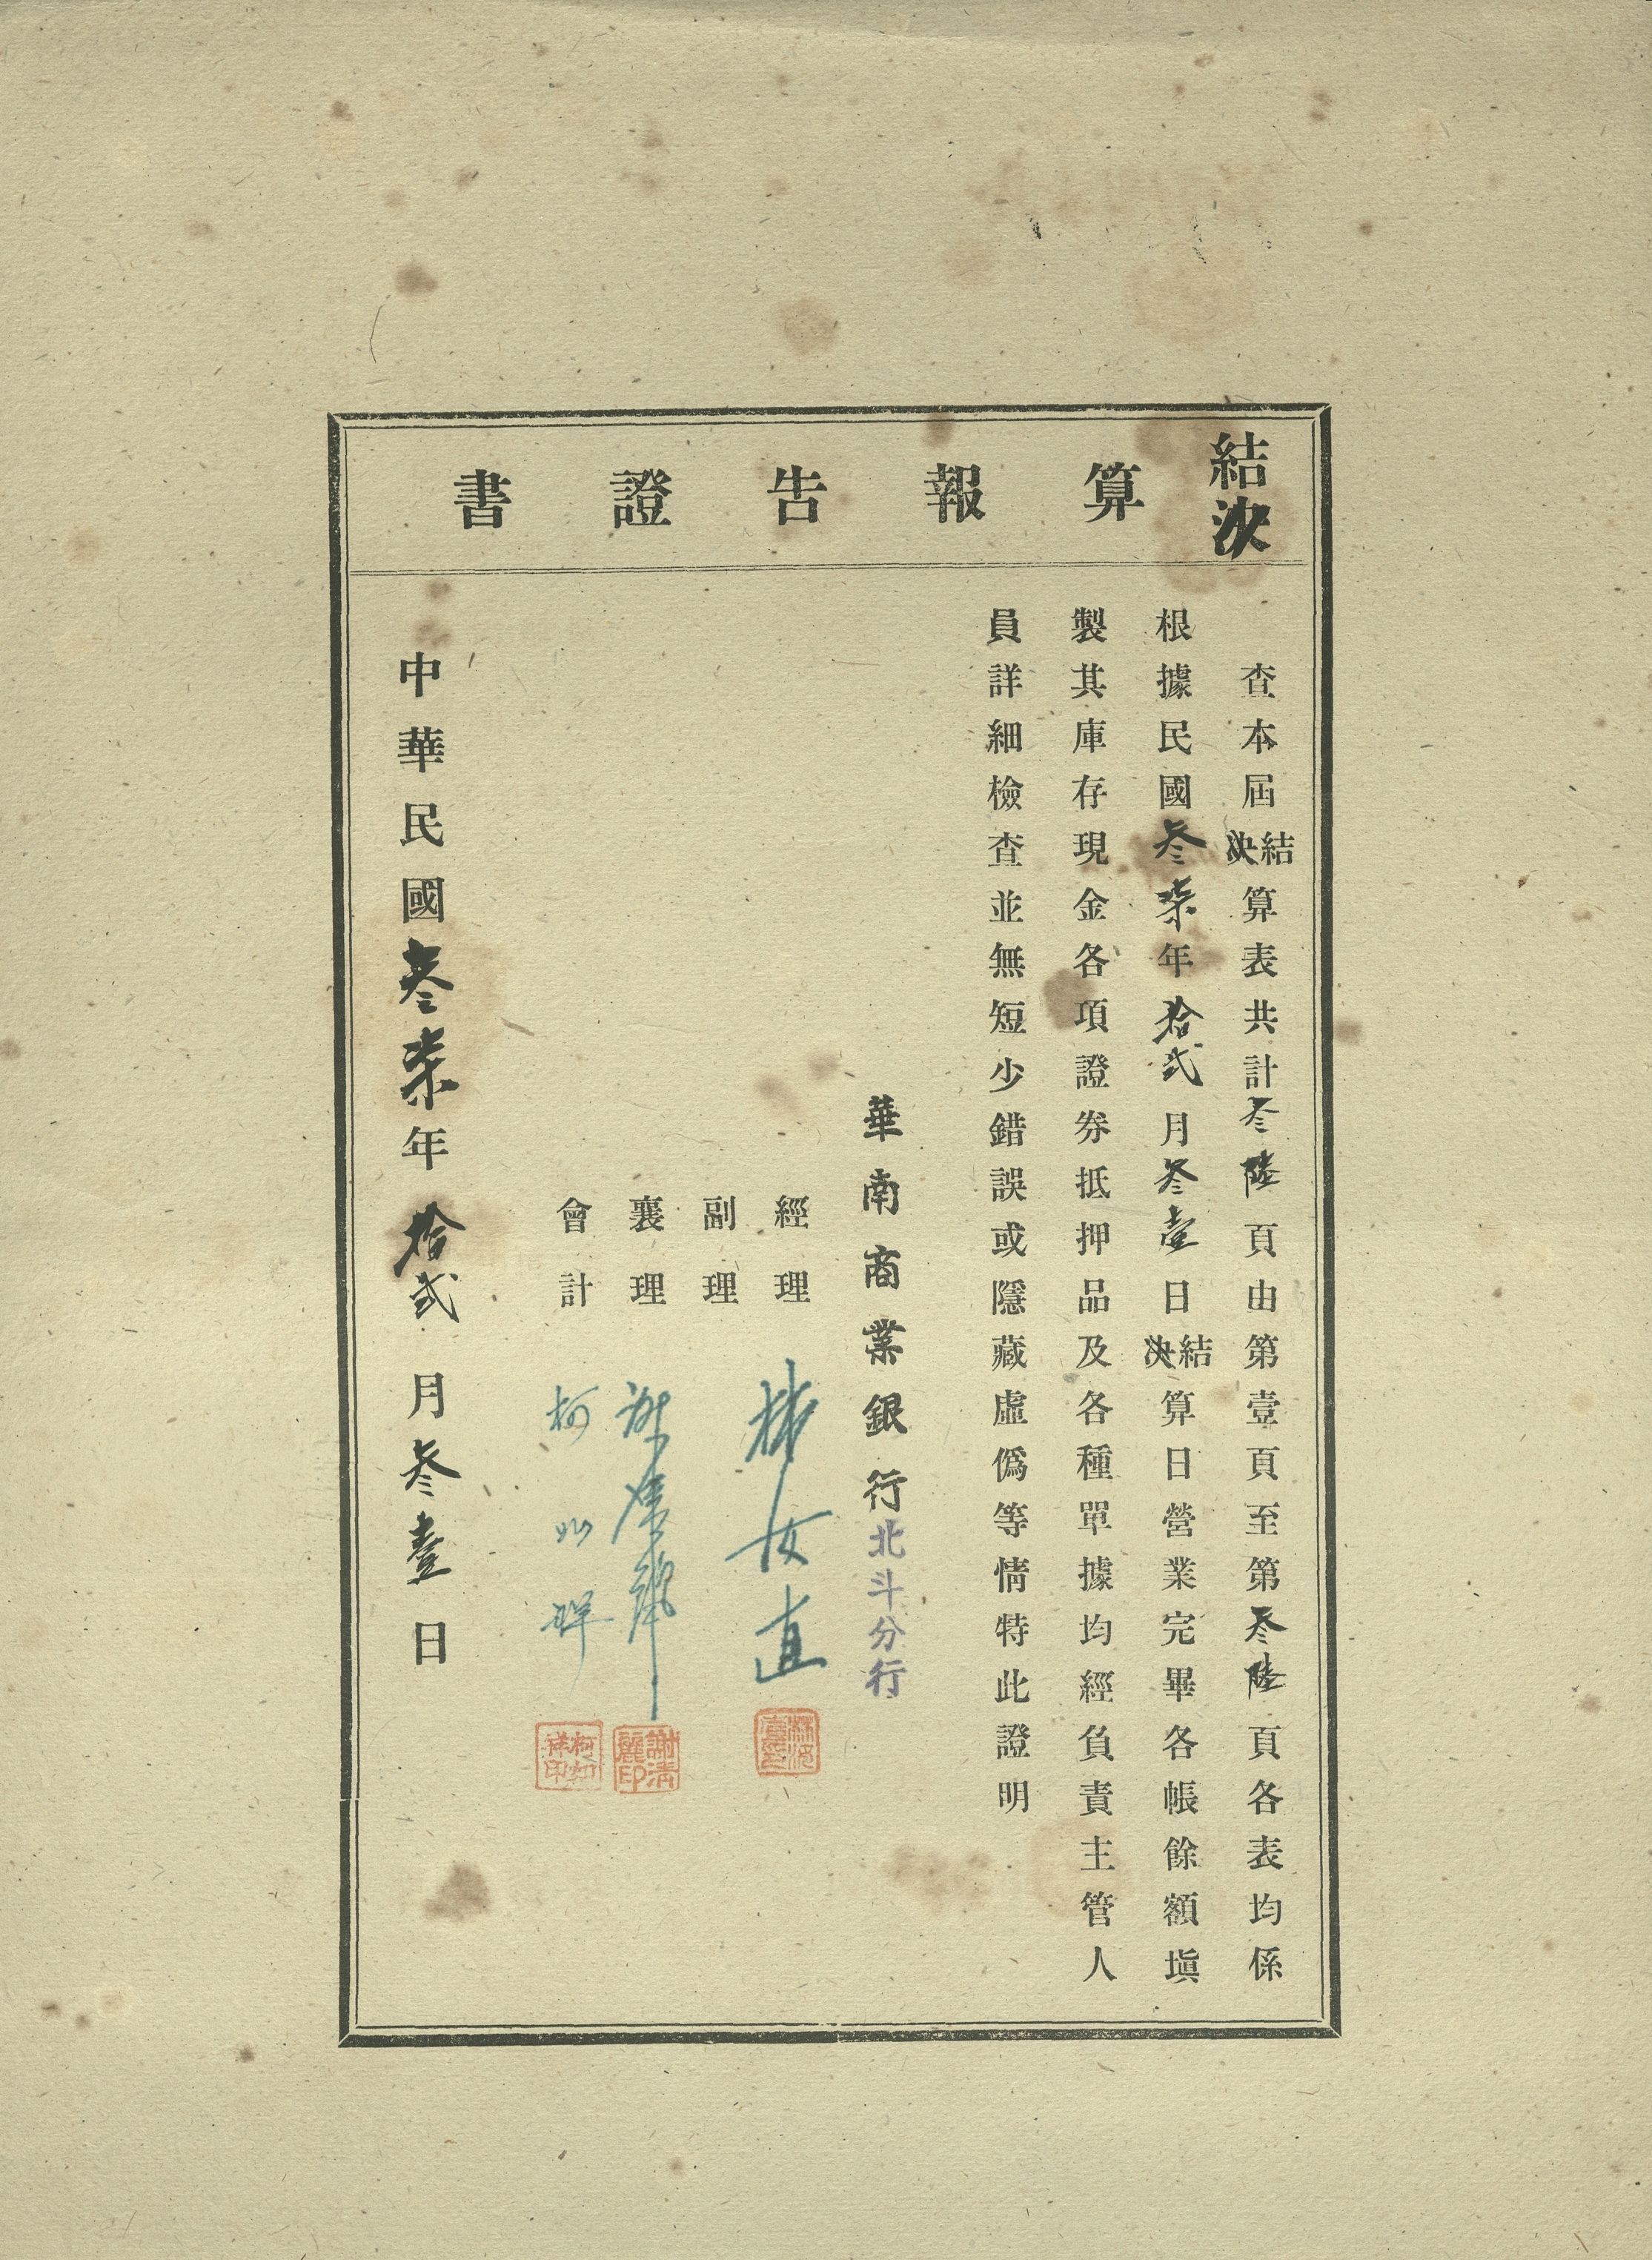 結決算報告證書
查本屆結決算表共計叁陸頁由第壹頁至第叁陸頁各表均係
根據民國叁柒年拾貳月叁壹日結決算日營業完畢各帳餘額塡
製其庫存現金各項證券抵押品及各種單據均經負責主管人
員詳細檢查並無短少錯誤或隱藏虛僞等情特此證明
華南商業銀行北斗分行
經理
副理
襄理
謝清麗印
會計 柯
中華民國叁柒年拾貳月叁壹日